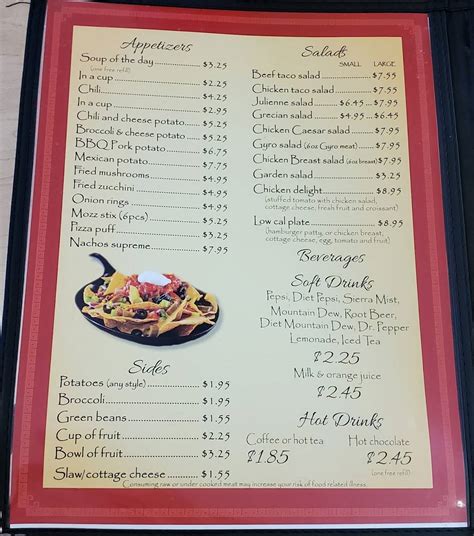 Appetizers
Soup of the day $3.25
(one free refill)
In a cup $2.25
Chili $4.25
In a cup $2.95
Chili and cheese potato $5.25
Broccoli & cheese potato $5.25
BBQ Pork potato $6.75
Mexican potato $7.75
Fried mushrooms $4.95
Fried zucchini $4.95
Onion rings $4.95
Mozz stix (6pcs) $5.25
Pizza puff $5.25
Nachos supreme $7.95
Sides
Potatoes (any style) $1.95
Broccoli $1.95
Green beans $1.55
Cup of fruit $2.25
Bowl of fruit $3.25
Slaw/cottage cheese $1.55
Salads
SMALL LARGE
Beef taco salad $7.55
Chicken taco salad $7.55
Julienne salad $6.45 $7.95
Grecian salad $4.95 $6.45
Chicken Caesar salad $7.95
Gyro salad (6oz Gyro meat) $7.95
Chicken Breast salad (6oz breast) $7.95
Garden salad $3.25
Chicken delight $8.95
(stuffed tomato with chicken salad,
cottage cheese, fresh fruit and croissant)
Low cal plate $8.95
(hamburger patty, or chicken breast,
cottage cheese, egg, tomato and fruit)
Beverages
Soft Drinks
Pepsi, Diet Pepsi, Sierra Mist,
Mountain Dew, Root Beer,
Diet Mountain Dew, Dr. Pepper
Lemonade, Iced Tea
$2.25
Milk & orange juice
$2.45
Hot Drinks
Coffee or hot tea Hot chocolate
$1.85 $2.45
(one free refill)
Consuming raw or under cooked meat may increase your risk of food related illness.